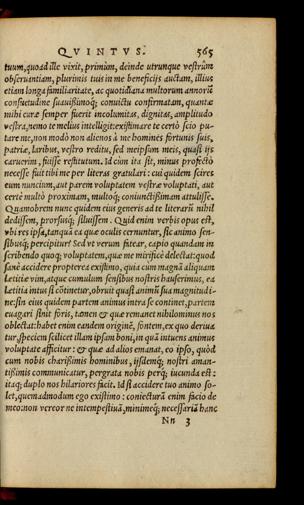 QVINTVS. 565
tuum, quoad ille vixit, primùm, deinde utrunque vestrûm
observantiam, plurimis tuis in me beneficijs auctam, illius
etiam longa familiaritate, ac quotidiana multorum annorũ
consuetudine suavißimoq; convictu confirmatam, quantæ
mihi caræ semper fuerit incolumitas, dignitas, amplitudo
vestra, nemo te melius intelligit: existimare te certò scio pu-
tare me, non modò non alienos à me homines fortunis suis,
patriæ, laribus, vestro reditu, sed meipsum meis, quasi ijs
caruerim, fuisse restitutum. Id cùm ita sit, minus profectò
necesse fuit tibi me per literas gratulari: cui quidem scires
eum nuncium, aut parem voluptatem vestræ voluptati, aut
certè multò proximam, multoq; coniunctißimam attulisse.
Quamobrem nunc quidem eius generis ad te literarũ nihil
dedissem, prorsusq; siluissem. Quid enim verbis opus est,
ubi res ipsa, tanquã ea quæ oculis cernuntur, sic animo sen-
sibusq; percipitur? Sed ut verum fatear, capio quandam in
scribendo quoq; voluptatem, quæ me mirificè delectat: quod
sanè accidere propterea existimo, quia cum magnã aliquam
lætitiæ vim, atque cumulum sensibus nostris hauserimus, ea
lætitia intus si cõtinetur, obruit quasi animũ sua magnitudi-
ne: sin eius quidem partem animus intra se continet, partem
evagari sinit foris, tamen & quæ remanet nihilominus nos
oblectat: habet enim eandem originẽ, fontem, ex quo deriva
tur, speciem scilicet illam ipsam boni, in quã intuens animus
voluptate afficitur: & quæ ad alios emanat, eo ipso, quòd
cum nobis charißimis hominibus, ijsdemq; nostri aman-
tißimis communicatur, pergrata nobis perq; iucunda est:
itaq; duplo nos hilariores facit. Id si accidere tuo animo so-
let, quemadmodum ego existimo: coniecturã enim facio de
meo: non vereor ne intempestivã, minimeq; necessariã hanc
Nn 3